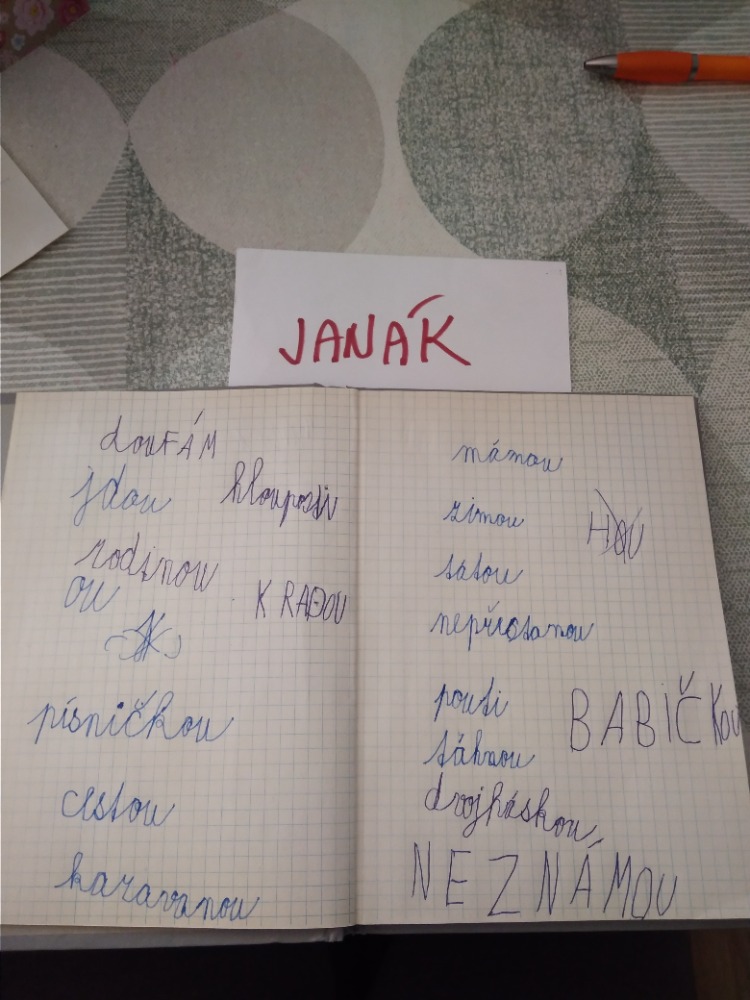 JANÁK
douFÁM
jdou hlouposti
rodinou
ou K RADOU
písničkou
cestou
karavanou
mámou
zimou
tátou
nepřestanou
pouti BABIČKOU
táhnou
dvojháskou
NEZNÁMOU